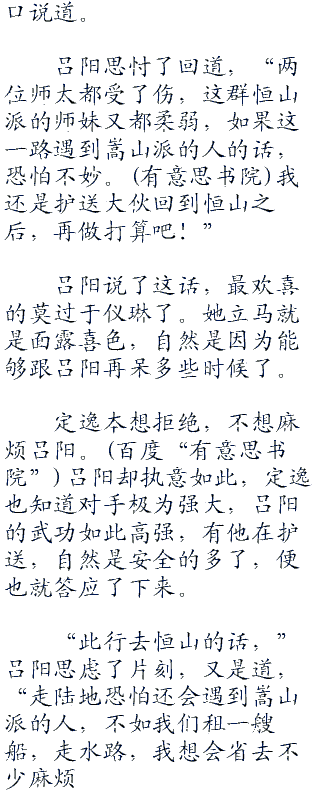 口说道。
吕阳思忖了回道，“两
位师太都受了伤，这群恒山
派的师妹又都柔弱，如果这
一路遇到嵩山派的人的话，
恐怕不妙。(有意思书院)我
还是护送大伙回到恒山之
后，再做打算吧！”
吕阳说了这话，最欢喜
的莫过于仪琳了。她立马就
是面露喜色，自然是因为能
够跟吕阳再呆多些时候了。
定逸本想拒绝，不想麻
烦吕阳。(百度“有意思书
院”)吕阳却执意如此，定逸
也知道对手极为强大，吕阳
的武功如此高强，有他在护
送，自然是安全的多了，便
也就答应了下来。
“此行去恒山的话，”
吕阳思虑了片刻，又是道，
“走陆地恐怕还会遇到嵩山
派的人，不如我们租一艘
船，走水路，我想会省去不
少麻烦